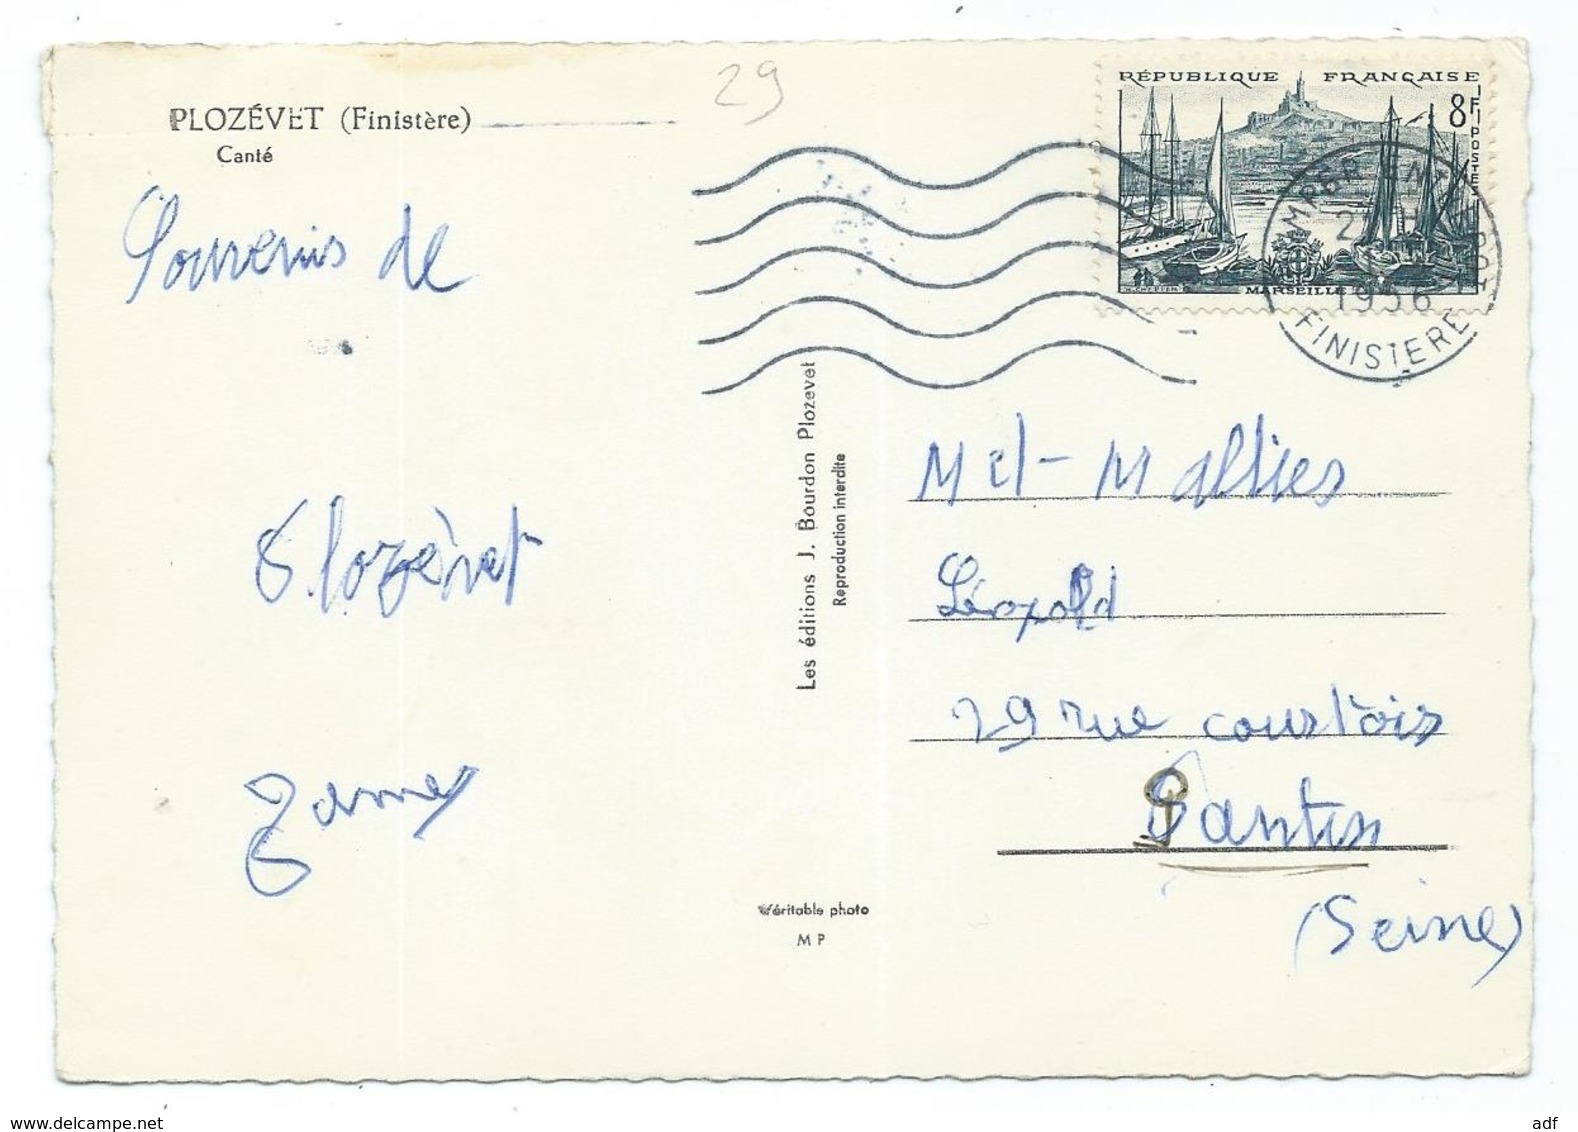 PLOZÉVET (Finistère)
Canté
29
Souvenirs de
Plozévet
RÉPUBLIQUE FRANÇAISE
8F
POSTES
MARSEILLE
QUIMPER ENTREPOT
1956
FINISTERE
Les éditions J. Bourdon Plozevet
Reproduction interdite
Véritable photo
M P
Léopold
29 rue courtois
Pantin
(Seine)
www.delcampe.net
adf